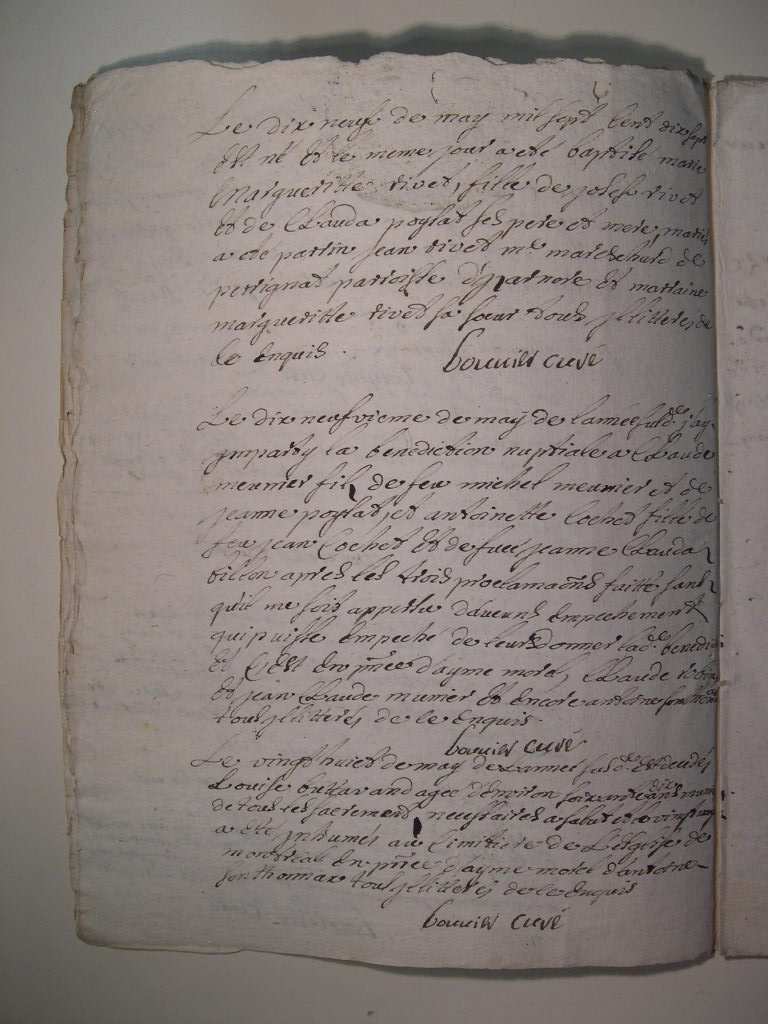 Le dix neuf de may mil sept cent dix sept
Est né et le meme jour a eté baptisé marie
Margueritte rivet, fille de josef rivet
Et de Clauda poylat ses pere et mere mariés
a eté parrin jean rivet me marechard de
perrignat parroisse d'yzarnore Et marraine
margueritte rivet sa soeur tous jllitteres de
ce Enquis.
bouuier curé
Le dix neufvieme de maÿ de lannée susde j'ay
jmparty la benediction nuptiale a Claude
meunier fils de feu michel meunier et de
jeanne poylat, et antoinette Cochet fille de
feu jean Cochet Et de fuë jeanne Clauda
billon apres les trois proclamaons faitte sans
qu'il me soit apparu d'aucuns Empechement
qui puisse Empeche de leurs donner lade benedicti
Et C'est En pnce d'ayme morel, Claude robin
Et jean Claude munier Et Encore antoine
tous jllitteres de ce Enquis.
bouuier curé
Le vingt huict de may de lannee susde Est decedée
Louise buttavand agee d'Environ soixante ans munie
de tous les sacrements necessaires a salut et le vingt neuf
a eté jnhumée au Cimittiere de L'eglise de
montreal En pnce d'ayme morel d'antoine
jonthomas tous jllitterés de ce Enquis
bouuier curé